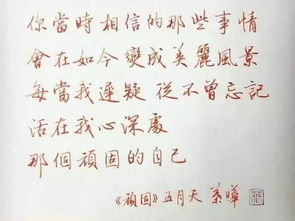 你當時相信的那些事情
會在如今變成美麗風景
每當我遲疑 從不曾忘記
活在我心深處
那個頑固的自己
《頑固》五月天